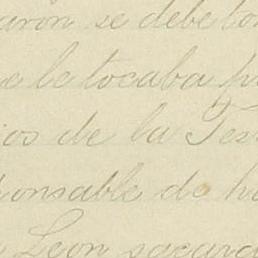 aron se debe
e le tocaba
ios de la
ponsable de
Leon sacará